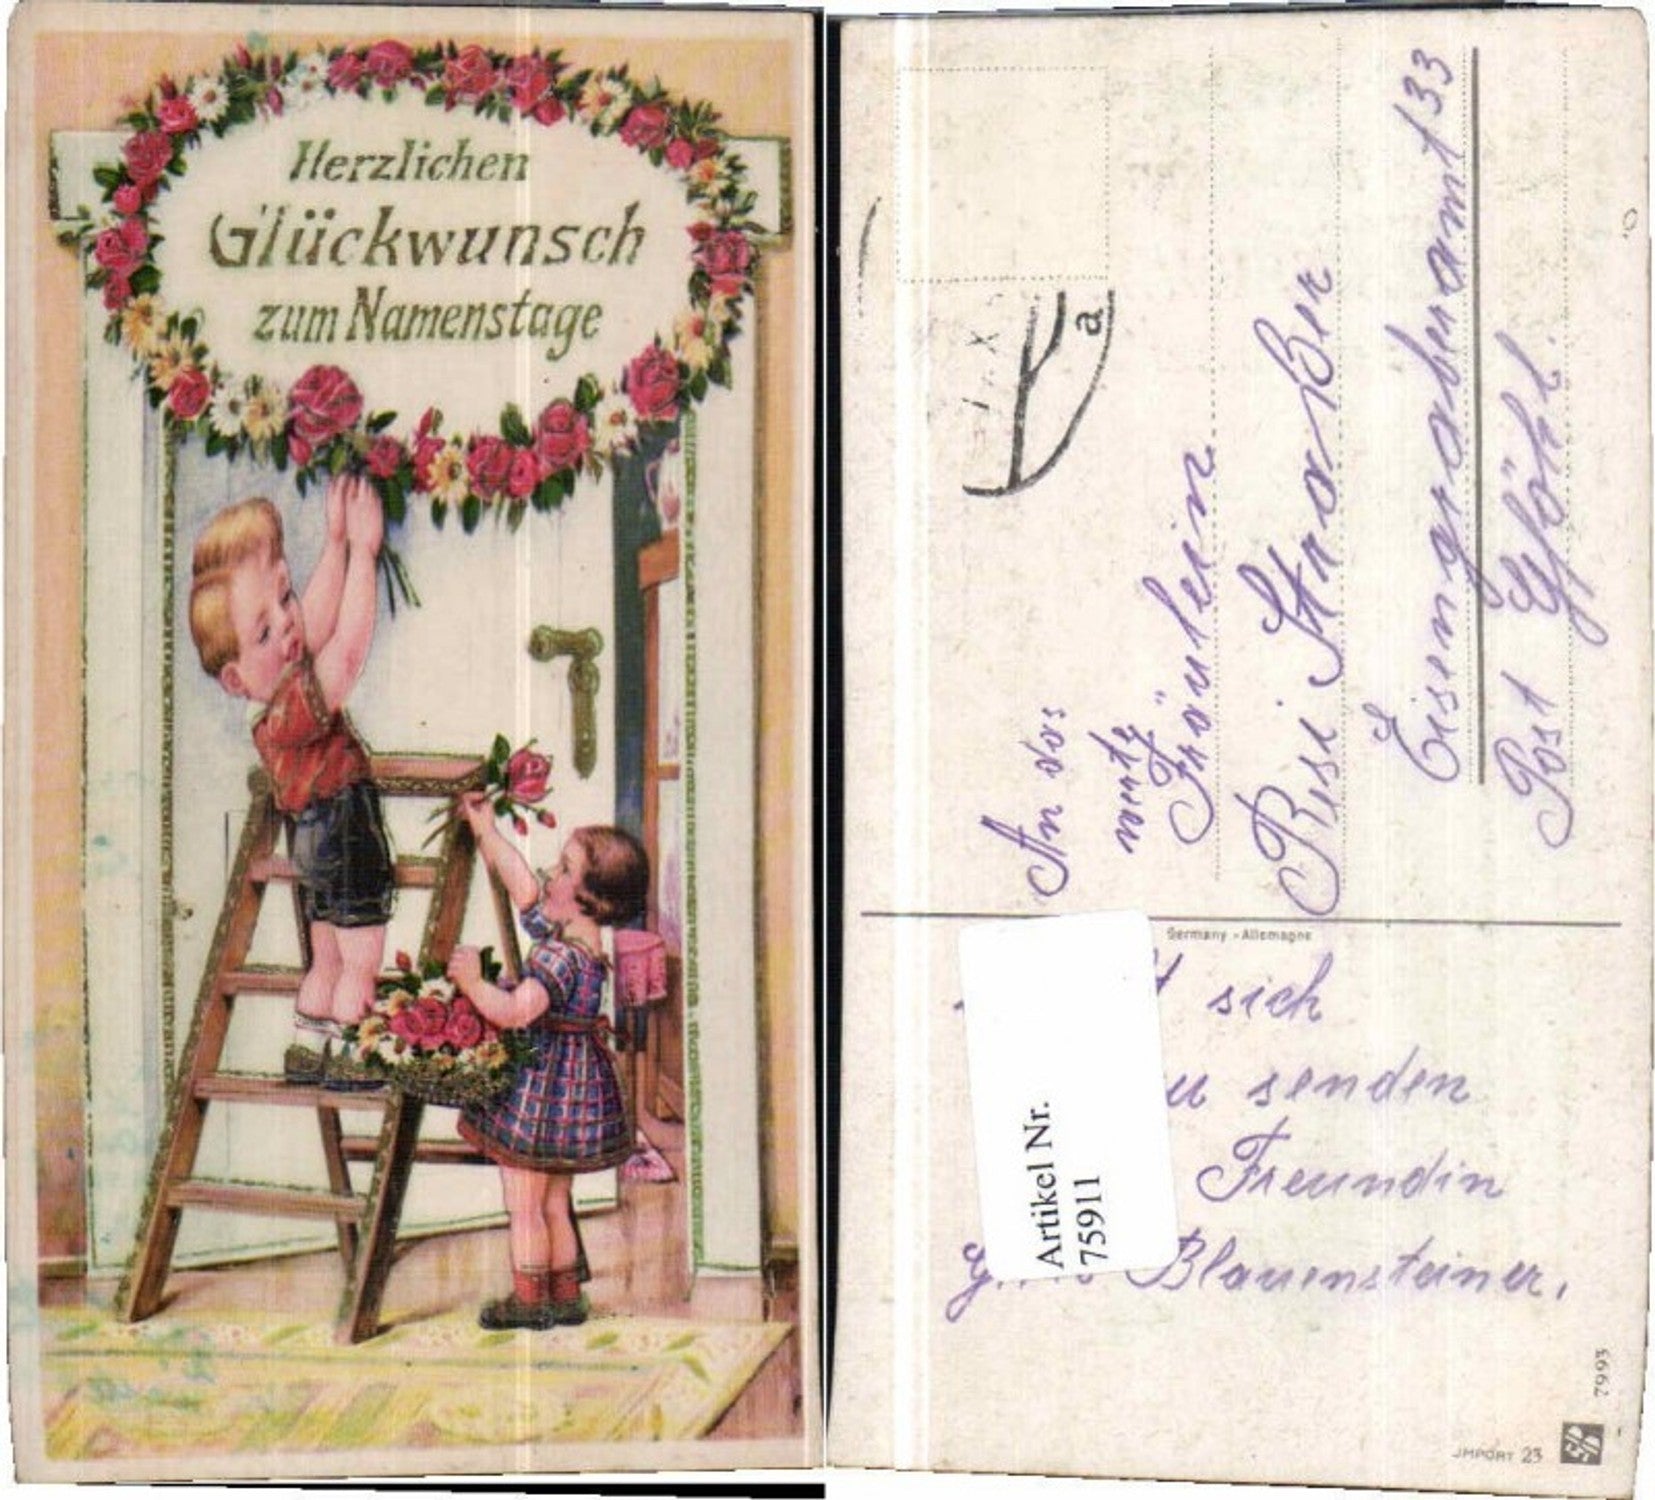 Herzlichen
Glückwunsch
zum Namenstage
a
An das
werte
Fräulein
Resi Starkl
Eisengraberamt 33
Post Gföhl.
Germany - Allemagne
sich
senden
Freundin
Blauensteiner,
Artikel Nr.
75911
7993
JMPORT 23